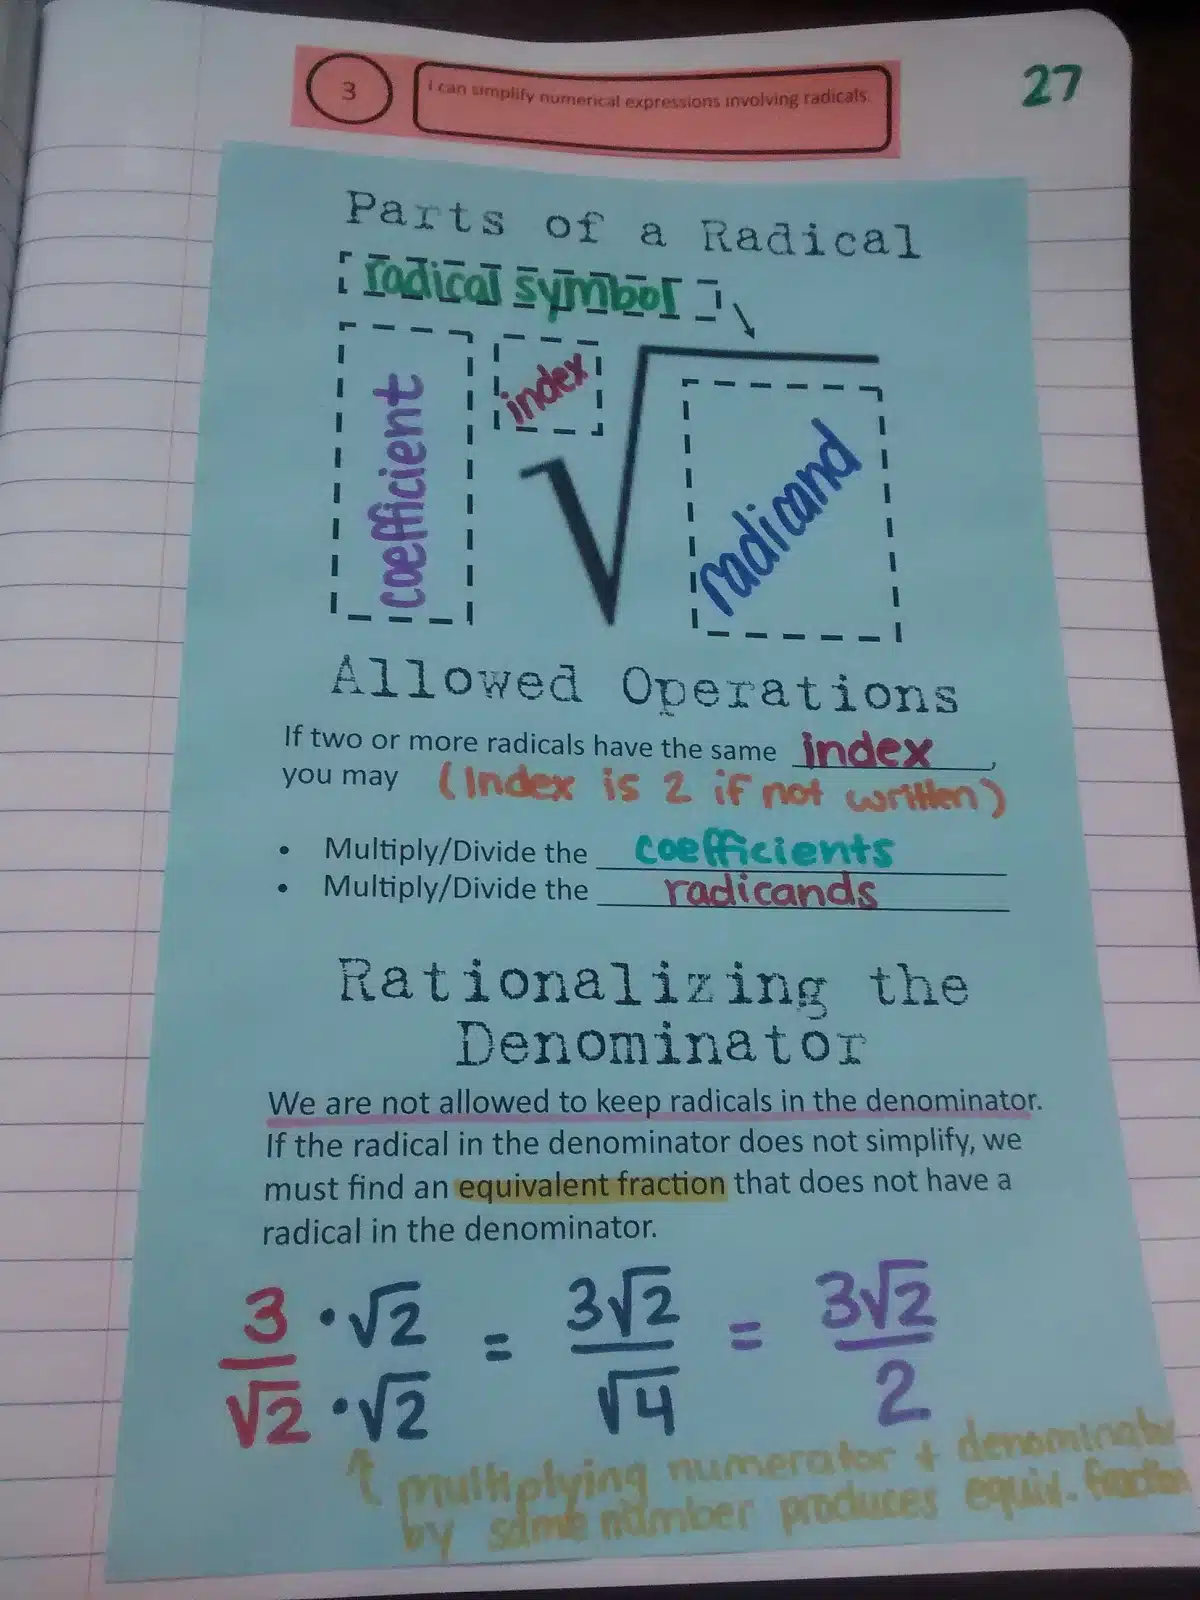 3
I can simplify numerical expressions involving radicals.
27
Parts of a Radical
radical symbol
coefficient
index
radicand
Allowed Operations
If two or more radicals have the same index,
you may (Index is 2 if not written)
• Multiply/Divide the coefficients
• Multiply/Divide the radicands
Rationalizing the
Denominator
We are not allowed to keep radicals in the denominator.
If the radical in the denominator does not simplify, we
must find an equivalent fraction that does not have a
radical in the denominator.
3 • √2 = 3√2 = 3√2
√2 • √2 √4 2
↑ multiplying numerator + denominator
by same number produces equiv. fraction